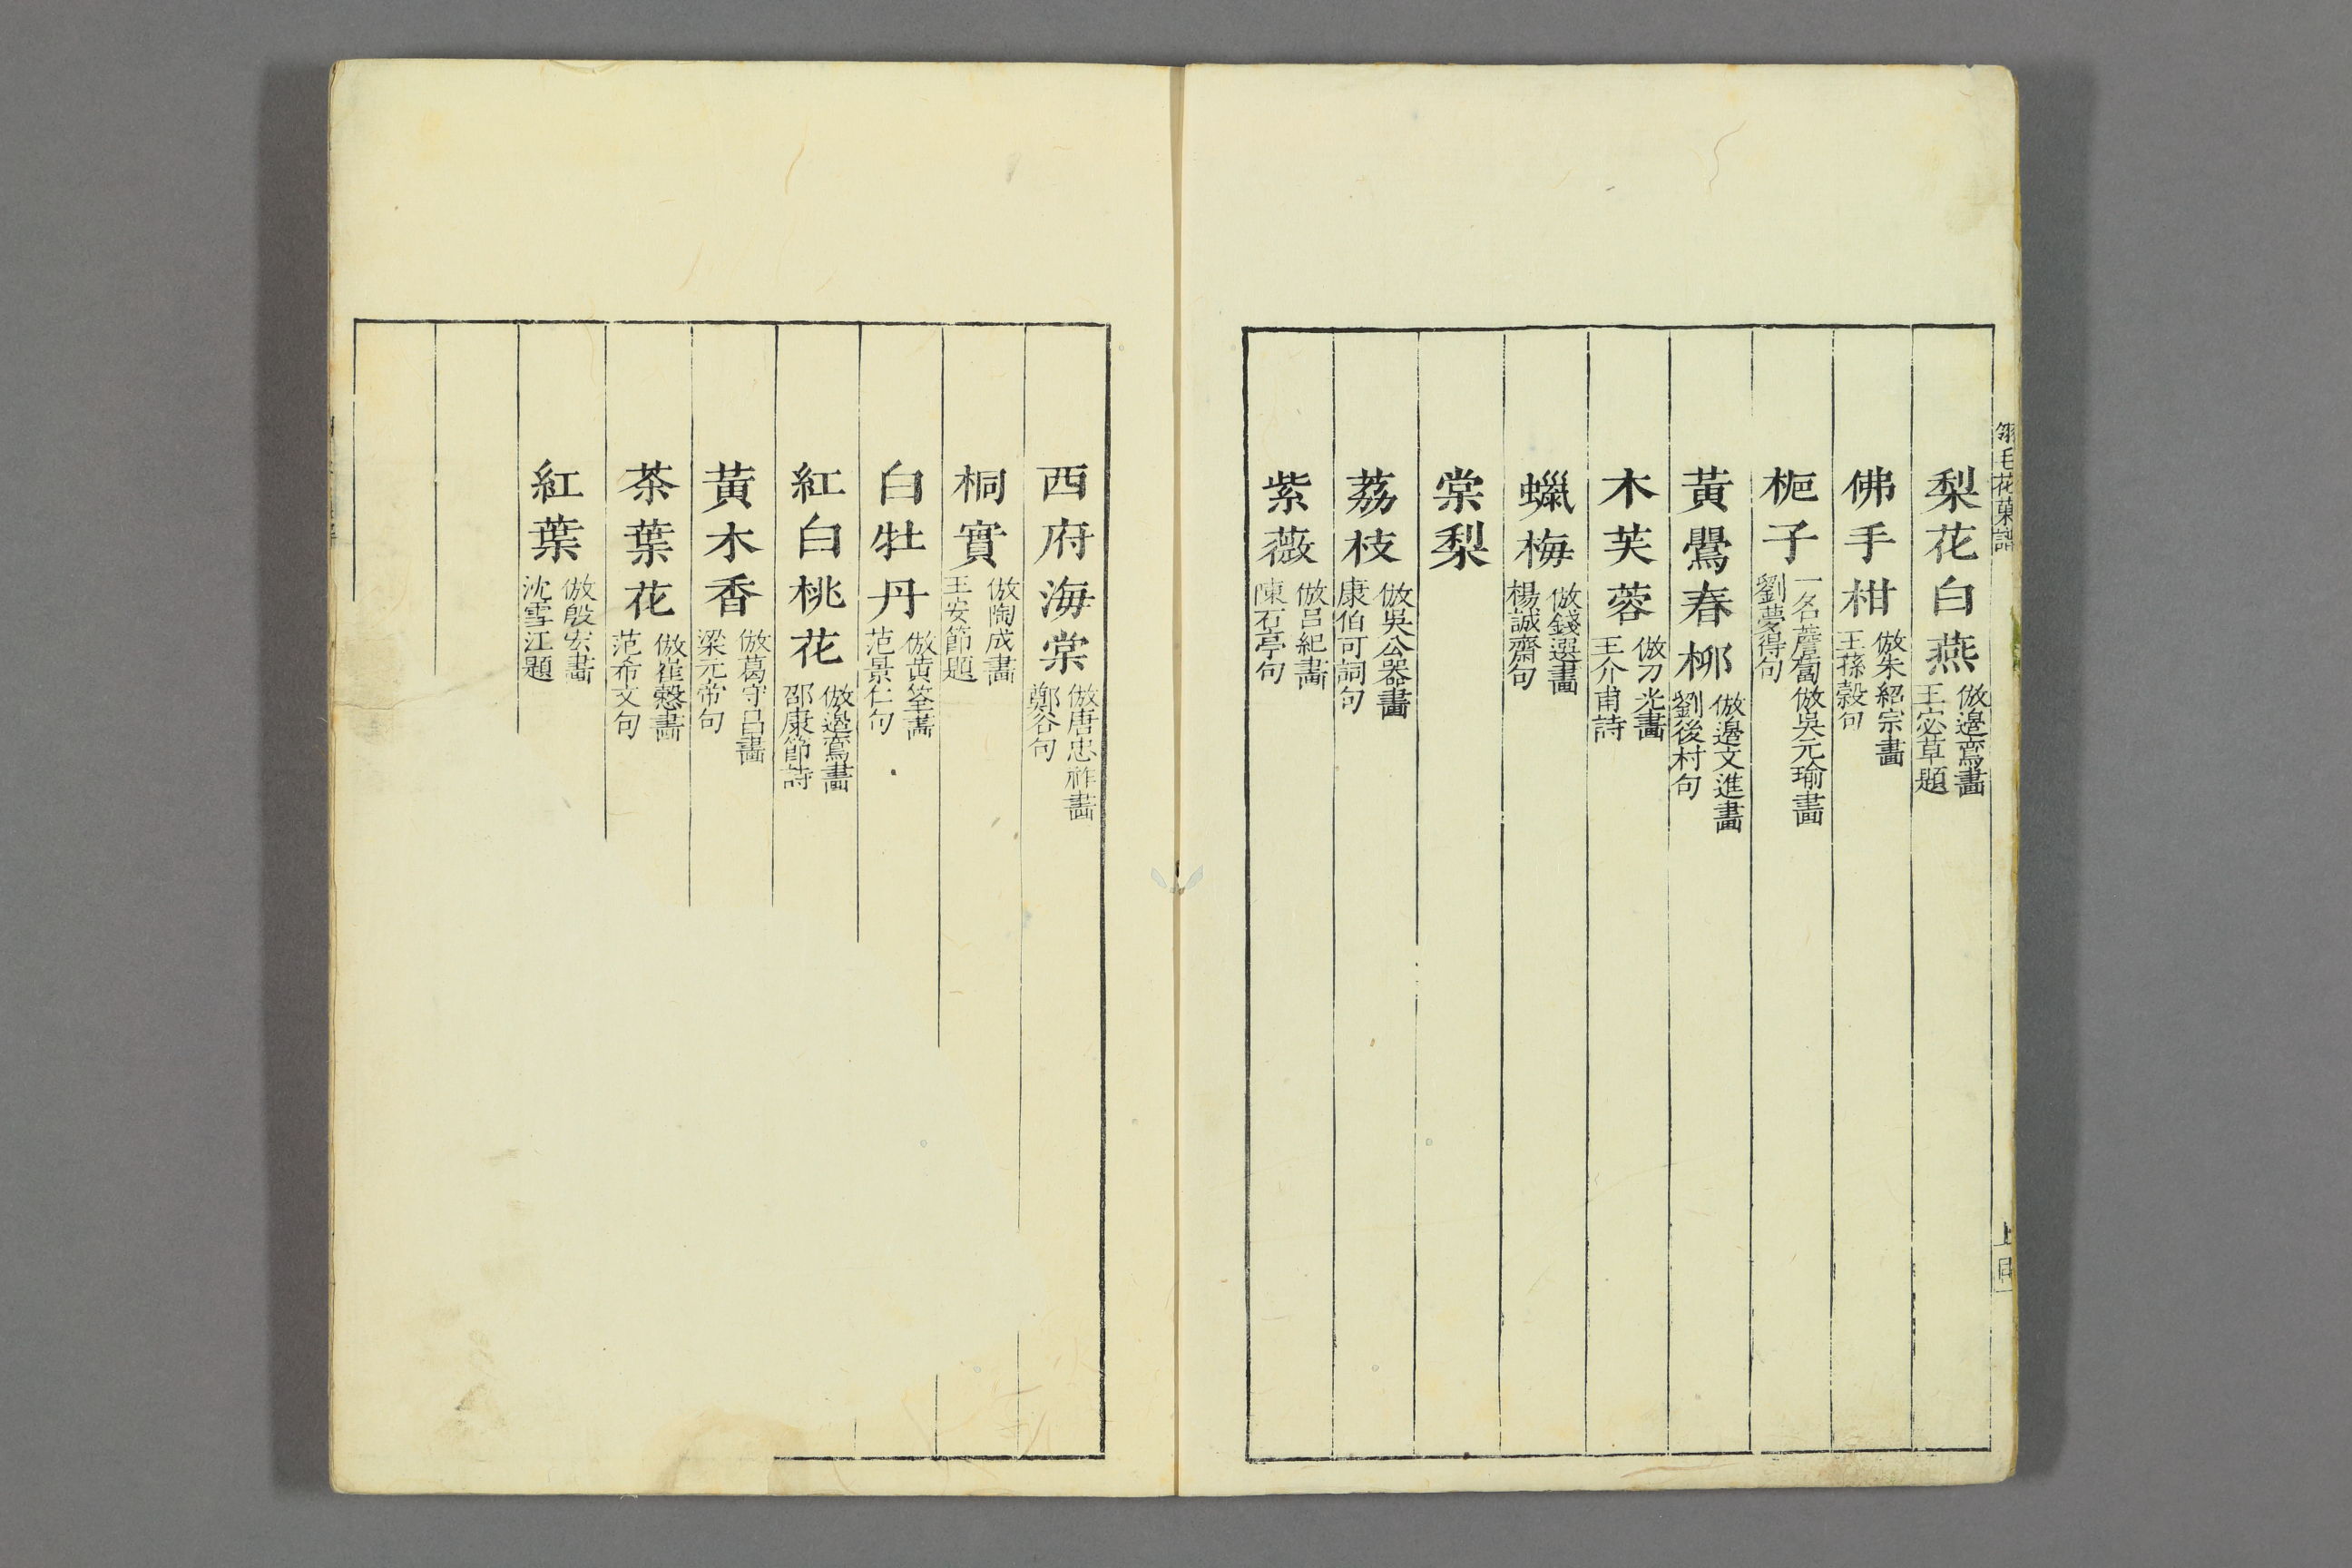 翎毛花菓譜
梨花白燕 倣邊鸞畫 王宓草題
佛手柑 倣朱紹宗畫 王蓀榖句
梔子 一名薝蔔倣吳元瑜畫 劉夢得句
黃鸎春桺 倣邊文進畫 劉後村句
木芙蓉 倣刁光畫 王介甫詩
蠟梅 倣錢選畫 楊誠齋句
棠梨
荔枝 倣吳公器畫 康伯可詞句
紫薇 倣呂紀畫 陳石亭句
上
西府海棠 倣唐忠祚畫 鄭谷句
桐實 倣陶成畫 王安節題
白牡丹 倣黄筌畫 范景仁句
紅白桃花 倣邊鸞畫 邵康節詩
黃木香 倣葛守昌畫 梁元帝句
茶葉花 倣崔慤畫 范希文句
紅葉 倣殷宏畫 沈雪江題